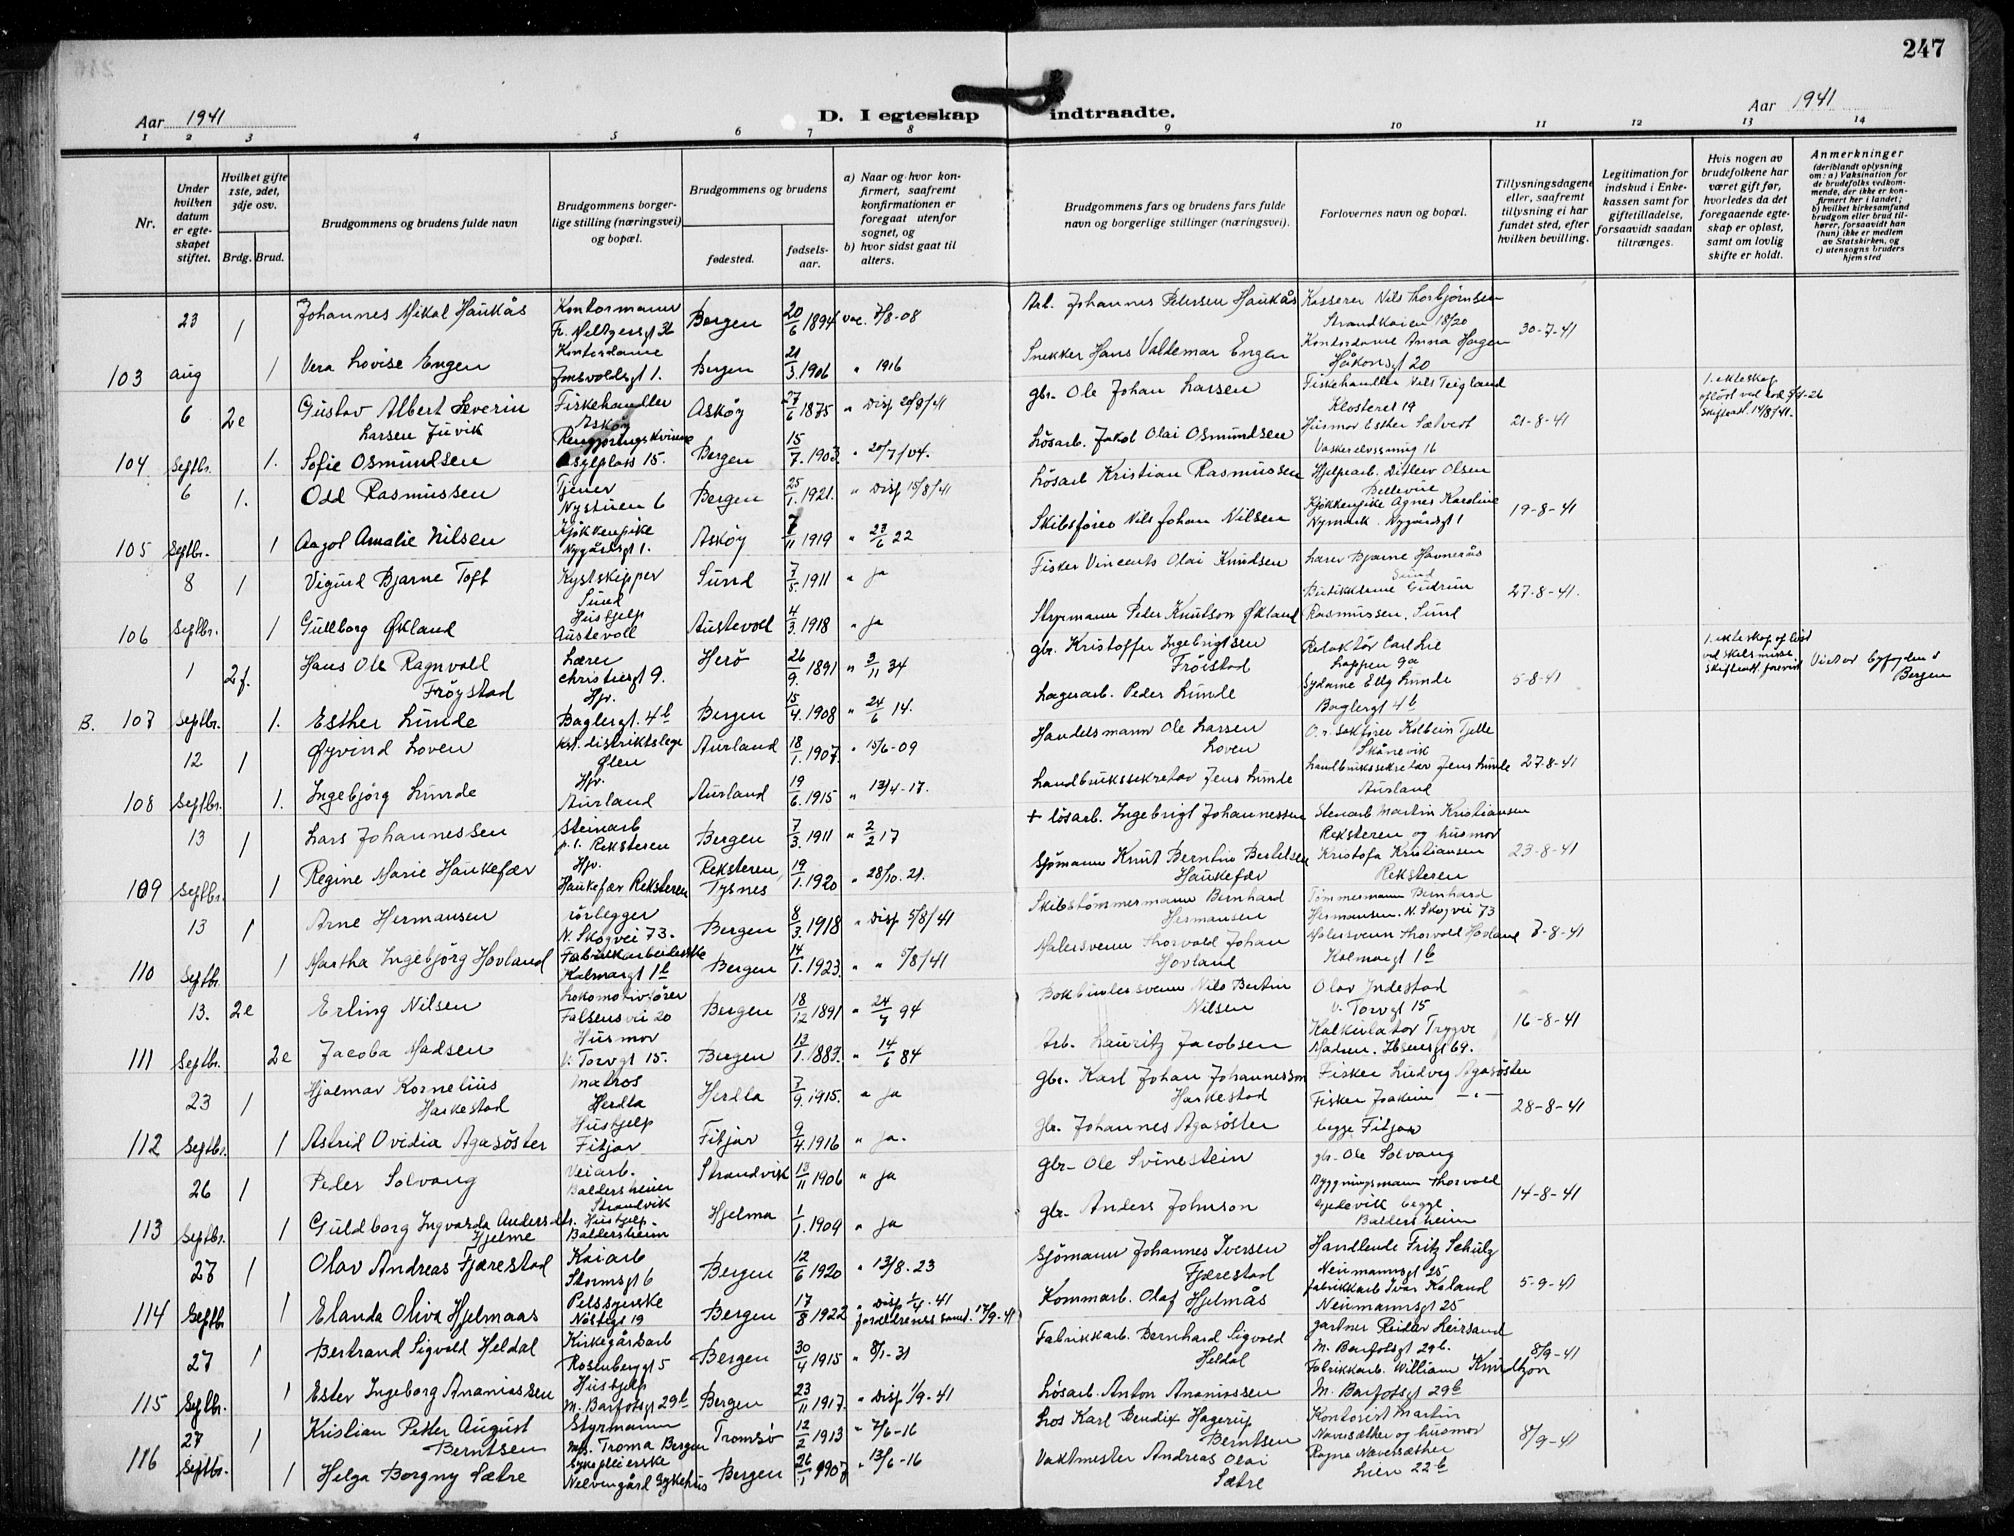 247
Aar 1941
D. I egteskap indtraadte.
Aar 1941
1 2 3 4 5 6 7 8 9 10 11 12 13 14
Nr.
Under hvilken datum er egteskapet stiftet.
Hvilket gifte 1ste, 2det, 3dje osv.
Brdg. Brud.
Brudgommens og brudens fulde navn
Brudgommens borgerlige stilling (næringsvei) og bopæl.
Brudgommens og brudens
fødested. fødselsaar.
a) Naar og hvor konfirmert, saafremt konfirmationen er foregaat utenfor sognet, og
b) hvor sidst gaat til alters.
Brudgommens fars og brudens fars fulde navn og borgerlige stillinger (næringsvei).
Forlovernes navn og bopæl.
Tillysningsdagene eller, saafremt tillysning ei har fundet sted, efter hvilken bevilling.
Legitimation for indskud i Enkekassen samt for giftetilladelse, forsaavidt saadan tiltrænges.
Hvis nogen av brudefolkene har været gift før, hvorledes da det foregaaende egteskap er opløst, samt om lovlig skifte er holdt.
Anmerkninger
(deriblandt oplysning om: a) Vaksination for de brudefolks vedkommende, der ikke er konfirmert her i landet; b) hvilket kirkesamfund brudgom eller brud tilhører, forsaavidt han (hun) ikke er medlem av Statskirken, og c) utensogns bruders hjemsted
23 1 Johannes Mikal Haukås Kontormann Fr. Meltzersgt 36 Bergen 20/6 1894 vac. 7/8-08 Arb. Johannes Petersen Haukås Kasserer Nils Thorbjørnsen Strandkaien 18/20 30-7-41
103 Aug 1 Vera Lovise Engen Kontordame Jonsvoldsgt 1. Bergen 21/3 1906 " 1916 Snekker Hans Valdemar Engen Kontordame Anna Hagen Håkonsgt 20
6 2e Gustav Albert Severin Larsen Juvik Fiskehandler Askøy Askøy 27/6 1875 " Disp 20/8/41 gbr. Ole Johan Larsen Fiskehandler Nils Teigland Klosteret 19 21-8-41 1. ekteskap opløst ved
104 Septbr. 1. Sofie Osmundsen Rengjøringskvinne Asylplass 15. Bergen 15/7 1903 " 20/7/04. Løsarb. Jakob Olai Osmundsen Husmor Esther Sælvert Vaskerelvssmug 16
6 1. Odd Rasmussen Tjener Nystuen 6 Bergen 25/1 1921. " Disp 15/8/41 Løsarb Kristian Rasmussen Hjelpearb. Ditlev Olsen Bellevue 19-8-41
105 Septbr. 1 Aagot Amalie Nilsen Kjøkkenpike Nygårdsgt 1. Askøy 7/11 1919 " 23/6 22 Skibsfører Nils Johan Nilsen Kjøkkenpike Agnes Karoline Nymark. Nygårdsgt 1
8 1 Vigurd Bjarne Toft Kystskipper Sund Sund 7/5 1911 " ja Fisker Vincents Olai Knudsen Lærer Bjarne Havnerås Sund 27-8-41.
106 Septbr. 1 Gullborg Økland Hushjelp Austevoll Austevoll 4/3 1918 " ja Styrmann Peder Knutson Økland Butikkdame Gudrun Rasmussen. Sund
1 2f. Hans Ole Ragnvald Frøystad Lærer Christiesgt 9. Herø 26/9 1891 " 3/11 34 gbr. Kristoffer Ingebrigtsen Frøistad Redaktør Carl Lie Lappen 9a 5-8-41 1. ekteskap opløst ved skilsmisse Viet av byfogden i Bergen
B. 107 Septbr. 1. Esther Lunde Hjv. Baglergt. 4b Bergen 15/4 1908 " 24/6 14. Lagerarb. Peder Lunde Sydame Elly Lunde Baglergt 4b
12 1 Øyvind Loven Kst. distriktslege Ølen Aurland 18/1 1907 " 15/6-09 Handelsmann Ole Larsen Loven O.r. sakfører Kolbein Tjelle Skånevik 27-8-41
108 Septbr. 1. Ingebjørg Lunde Hjv. Aurland Aurland 19/6 1915 " 13/4-17. Landbrukssekretær Jens Lunde Landbrukssekretær Jens Lunde Aurland
13 1 Lars Johannessen Steinarb p.t. Reksteren Bergen 7/3 1911 " 2/2 17 + løsarb. Ingebrigt Johannessen Stenarb Martin Kristiansen Reksteren og husmor 23-8-41
109 Septbr. 1 Regine Marie Haukefær Hjv. Haukefær Reksteren Reksteren, Tysnes 19/1 1920 " 28/10.21. Sjømann Knut Berntin Bertelsen Haukefær Kristofa Kristiansen Reksteren
13 1 Arne Hermansen rørlegger N. Skogvei 73. Bergen 8/3 1918 " Disp 5/8/41 Skibstømmermann Bernhard Hermansen Tømmermann Bernhard Hermansen. N. Skogvei 73 7-8-41
110 Septbr. 1 Martha Ingebjörg Hovland Fabrikkarbeiderske Kalmargt 1b Bergen 14/1 1923. " " 5/8/41 Malersvenn Thorvald Johan Hovland Malersvenn Thorvald Hovland Kalmargt 1b
13. 2e Erling Nilsen Lokomotivfører Falsensvei 20 Bergen 18/12 1891 " 24/7 94 Bokbindersvenn Nils Bertin Nilsen Olav Indestad V. Torvgt 15 16-8-41
111 Septbr. 2e Jacoba Madsen Husmor V. Torvgt 15. Bergen 13/1 1883. " 14/6 84 Arb. Lauritz Jacobsen Kalkulatør Trygve Madsen. Ibsensgt 69.
23 1 Hjalmar Kornelius Harkestad Matros Herdla Herdla 7/9 1915. " ja gbr. Karl Johan Johannesson Harkestad Fisker Ludvig Agasøster 28-8-41
112 Septbr. 1 Astrid Ovidia Agasøster Hushjelp Fitjar Fitjar 9/4 1916 " ja. gbr. Johannes Agasøster Fisker Joakim -"- begge Fitjar
26 1 Peder Solvang Veiarb. Baldersheim Strandvik Strandvik 13/11 1906 " ja gbr. Ole Svinestein gbr. Ole Solvang 14-8-41
113 Septbr. 1 Guldborg Ingvarda Andersdtr. Hjelme Hushjelp. Baldersheim Hjelma 1/1 1909 " ja gbr. Anders Johnson Bygningsmann Thorvald Gjedevik begge Baldersheim
27 1 Olav Andreas Fjærestad Kaiarb Stormsgt 6 Bergen 12/6 1920 " 13/8-23 Sjømann Johannes Iversen Fjærestad Handlende Fritz Schulz Neumannsgt 25 5-9-41
114 Septbr 1 Elanda Oliva Hjelmaas Pelssyerske Nöstegt 19 Bergen 17/8 1922 " Disp 1/4.41 foreldrenes samt. 17/9-41 Kommarb. Olaf Hjelmås fabrikkarb Ivar Kaland Neumannsgt 25
27 1 Bertrand Sigvald Heldal Kirkegårdsarb Rosenberggt 5 Bergen 30/4 1915 " 8/1-31 Fabrikkarb. Bernhard Sigvald Heldal gartner Reidar Leirsand M. Barfotsgt 29b. 8/9-41
115 Septbr. 1 Ester Ingeborg Ananiassen Hushjelp M. Barfotsgt 29b Bergen 23/11 1917. " Disp 1/9-41 Løsarb. Anton Ananiassen Fabrikkarb. William Knudtzon M. Barfotsgt 29b
27 1 Kristian Petter August Berntsen Styrmann M/s. Troma Bergen Tromsø 12/2 1913 " 7/6-16 Los Karl Bendix Hagerup Berntsen Kontorist Martin Naversæther og husmor 8/9-41
116 Septbr. 1 Helga Borgny Sætre Sykepleierske Nelvengård Sykehus Bergen 26/1 1907 " 13/6-16 Vaktmester Andreas Olai Sætre Ragna Naversæther Lien 22b